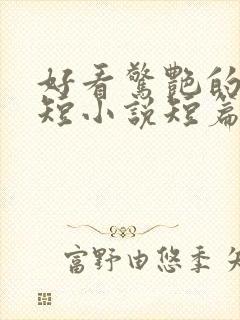 好看驚艷的
短小說短篇
富野由悠季